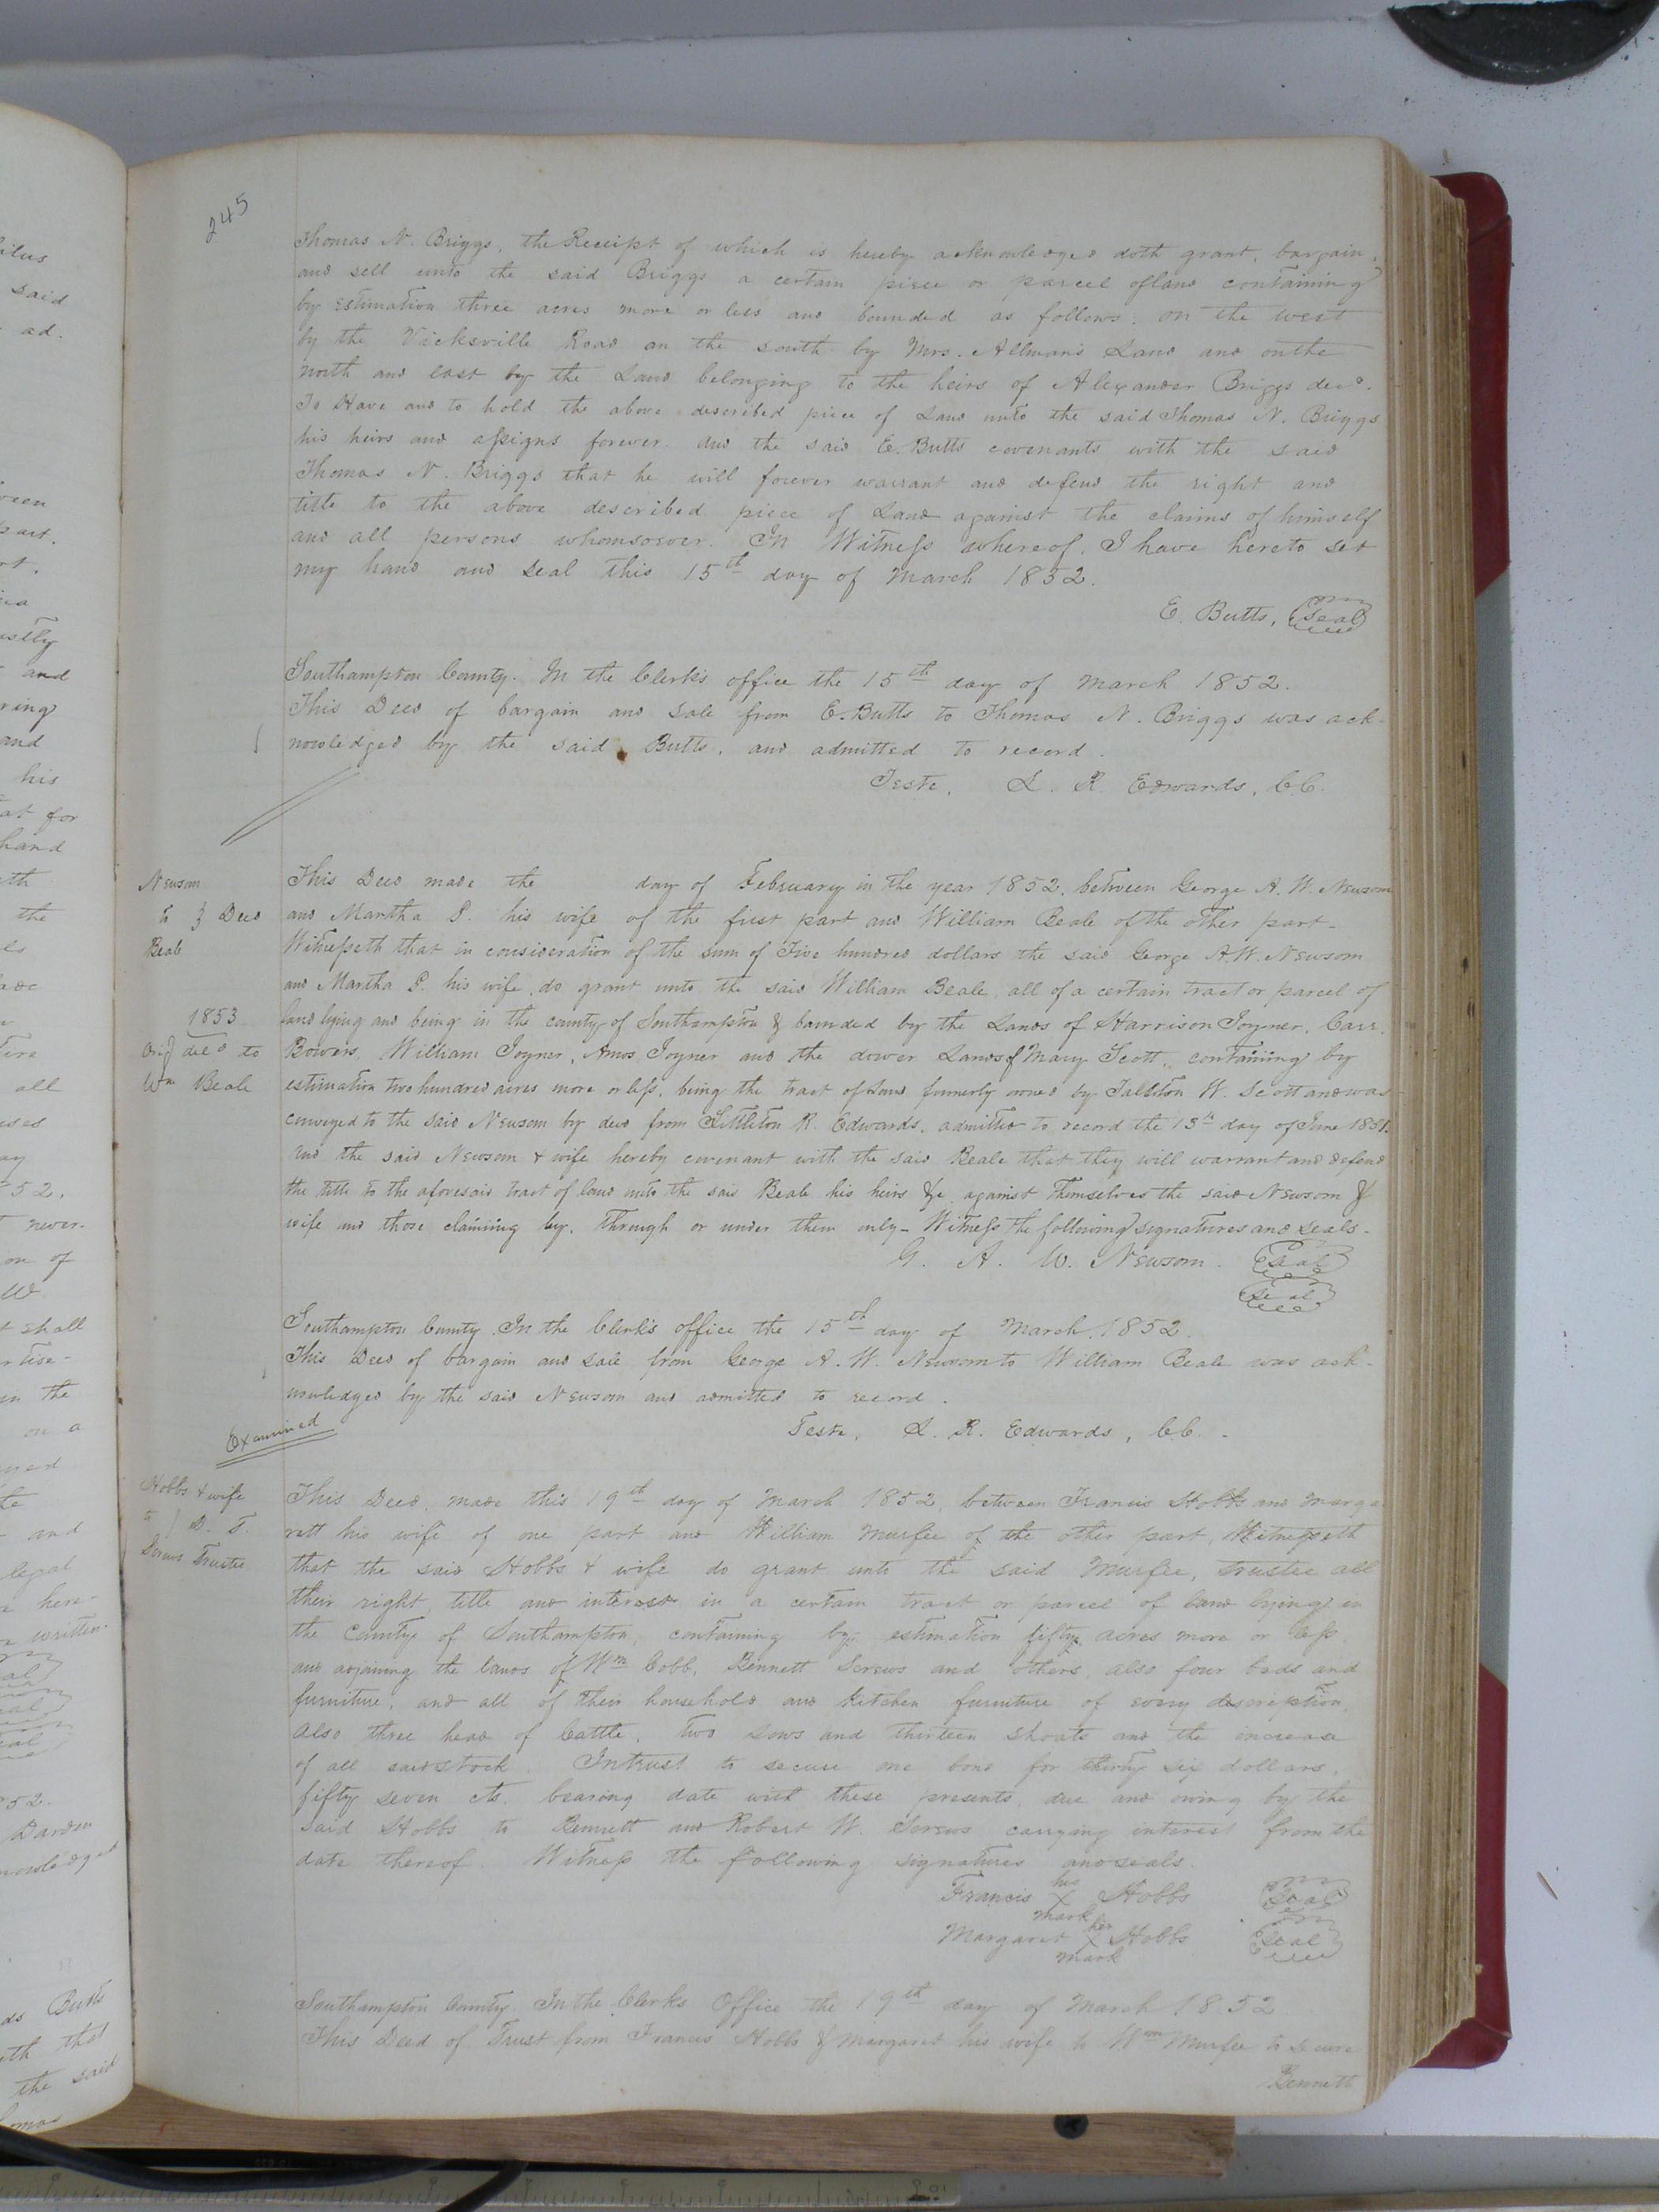 245
Thomas N. Briggs, the Receipt of which is hereby acknowledged doth grant, bargain,
and sell unto the said Briggs a certain piece or parcel of land containing
by estimation three acres more or less and bounded as follows. on the west
by the Vicksville Road on the south by Mrs. Allman's Land and on the
north and east by the Land belonging to the heirs of Alexander Briggs decd.
To Have and to hold the above described piece of Land unto the said Thomas N. Briggs
his heirs and assigns forever. and the said E. Butts covenants with the said
Thomas N. Briggs that he will forever warrant and defend the right and
title to the above described piece of Land against the claims of himself
and all persons whomsoever. In Witness whereof, I have hereto set
my hand and seal this 15th day of March 1852.
E. Butts, Seal
Southampton County. In the Clerk's office the 15th day of March 1852.
This Deed of bargain and sale from E. Butts to Thomas N. Briggs was ack-
nowledged by the said Butts, and admitted to record.
Teste, L. R. Edwards, C.C.
Newsom
to } Deed
Beale
1853
Orig deld to
Wm Beale
This Deed made the day of February in the year 1852, between George A. W. Newsom
and Martha P. his wife of the first part and William Beale of the other part-
Witnesseth that in consideration of the sum of Five hundred dollars the said George A. W. Newsom
and Martha P. his wife, do grant unto the said William Beale, all of a certain tract or parcel of
land lying and being in the county of Southampton & bounded by the Lands of Harrison Joyner, Carr
Bowers, William Joyner, Amos Joyner and the dower Lands of Mary Scott, containing by
estimation two hundred acres more or less, being the tract of Land formerly owned by Tallton W. Scott and was
conveyed to the said Newsom by deed from Littleton R. Edwards, admitted to record the 13th day of June 1851.
And the said Newsom & wife hereby covenant with the said Beale that they will warrant and defend
the title to the aforesaid tract of land unto the said Beale his heirs &c. against themselves the said Newsom &
wife and those claiming by, through or under them only- Witness the following signatures and seals-
G. A. W. Newsom. Seal
Seal
Southampton County. In the Clerk's office the 15th day of March, 1852.
This Deed of bargain and sale from George A. W. Newsom to William Beale was ack-
nowledged by the said Newsom and admitted to record.
Teste, L. R. Edwards, C.C.
Examined
Hobbs & wife
to } D. T.
Drews Trustee
This Deed, made this 19th day of March 1852, between Francis Hobbs and Marga
rett his wife of one part and William Murfee of the other part, Witnesseth
that the said Hobbs & wife do grant unto the said Murfee, trustee all
their right, title and interest in a certain tract or parcel of land lying in
the County of Southampton, containing by estimation fifty acres more or less
and adjoining the lands of Wm Cobb, Bennett Screws and others, also four beds and
furniture, and all of their household and kitchen furniture of every description.
also three head of Cattle, two sows and thirteen shoats and the increase
of all said stock. In trust to secure one bond for thirty six dollars,
fifty seven cts. bearing date with these presents, due and owing by the
said Hobbs to Bennett and Robert W. Screws carrying interest from the
date thereof. Witness the following signatures and seals.
Francis his X mark Hobbs Seal
Margaret her X mark Hobbs Seal
Southampton County In the Clerks Office the 19th day of March 1852
This Deed of Trust from Francis Hobbs & Margaret his wife to Wm Murfee to secure
Bennett